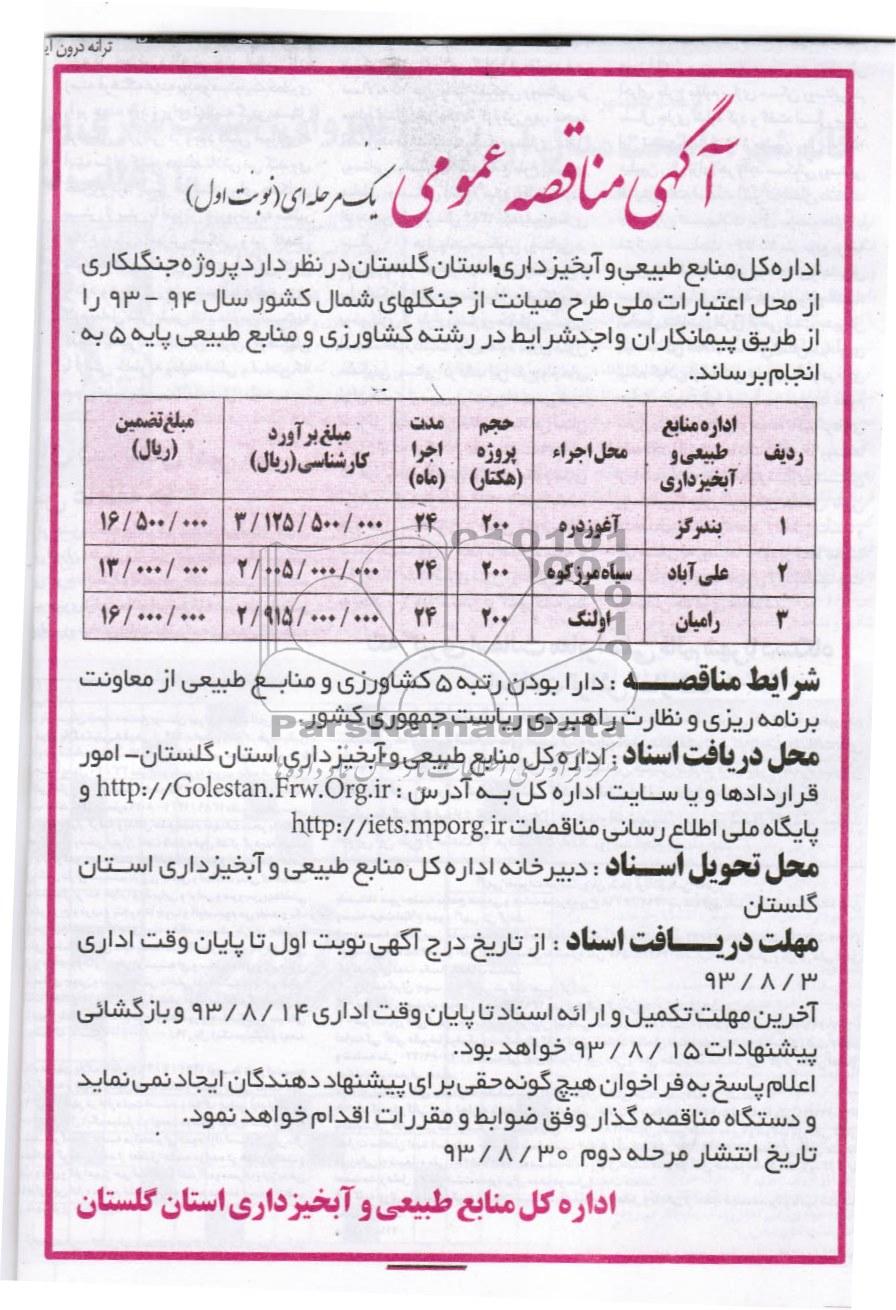 ترانه درون ای
آگهی مناقصه عمومی یک مرحله ای (نوبت اول)
اداره کل منابع طبیعی و آبخیزداری استان گلستان در نظر دارد پروژه جنگلکاری
از محل اعتبارات ملی طرح صیانت از جنگلهای شمال کشور سال ۹۴ - ۹۳ را
از طریق پیمانکاران واجدشرایط در رشته کشاورزی و منابع طبیعی پایه ۵ به
انجام برساند.
ردیف | اداره منابع طبیعی و آبخیزداری | محل اجراء | حجم پروژه (هکتار) | مدت اجرا (ماه) | مبلغ برآورد کارشناسی (ریال) | مبلغ تضمین (ریال)
۱ | بندرگز | آغوزدره | ۲۰۰ | ۲۴ | ۳/۱۲۵/۵۰۰/۰۰۰ | ۱۶/۵۰۰/۰۰۰
۲ | علی آباد | سیاه مرزکوه | ۲۰۰ | ۲۴ | ۲/۰۰۵/۰۰۰/۰۰۰ | ۱۳/۰۰۰/۰۰۰
۳ | رامیان | اولنگ | ۲۰۰ | ۲۴ | ۲/۹۱۵/۰۰۰/۰۰۰ | ۱۶/۰۰۰/۰۰۰
شرایط مناقصه : دارا بودن رتبه ۵ کشاورزی و منابع طبیعی از معاونت
برنامه ریزی و نظارت راهبردی ریاست جمهوری کشور.
ParsNamadData
محل دریافت اسناد : اداره کل منابع طبیعی و آبخیزداری استان گلستان- امور
قراردادها و یا سایت اداره کل به آدرس : http://Golestan.Frw.Org.ir و
پایگاه ملی اطلاع رسانی مناقصات http://iets.mporg.ir
محل تحویل اسناد : دبیرخانه اداره کل منابع طبیعی و آبخیزداری استان
گلستان
مهلت دریافت اسناد : از تاریخ درج آگهی نوبت اول تا پایان وقت اداری
۹۳ / ۸ / ۳
آخرین مهلت تکمیل و ارائه اسناد تا پایان وقت اداری ۹۳/۸/۱۴ و بازگشائی
پیشنهادات ۹۳/۸/۱۵ خواهد بود.
اعلام پاسخ به فراخوان هیچ گونه حقی برای پیشنهاد دهندگان ایجاد نمی نماید
و دستگاه مناقصه گذار وفق ضوابط و مقررات اقدام خواهد نمود.
تاریخ انتشار مرحله دوم ۹۳/۸/۳۰
اداره کل منابع طبیعی و آبخیزداری استان گلستان